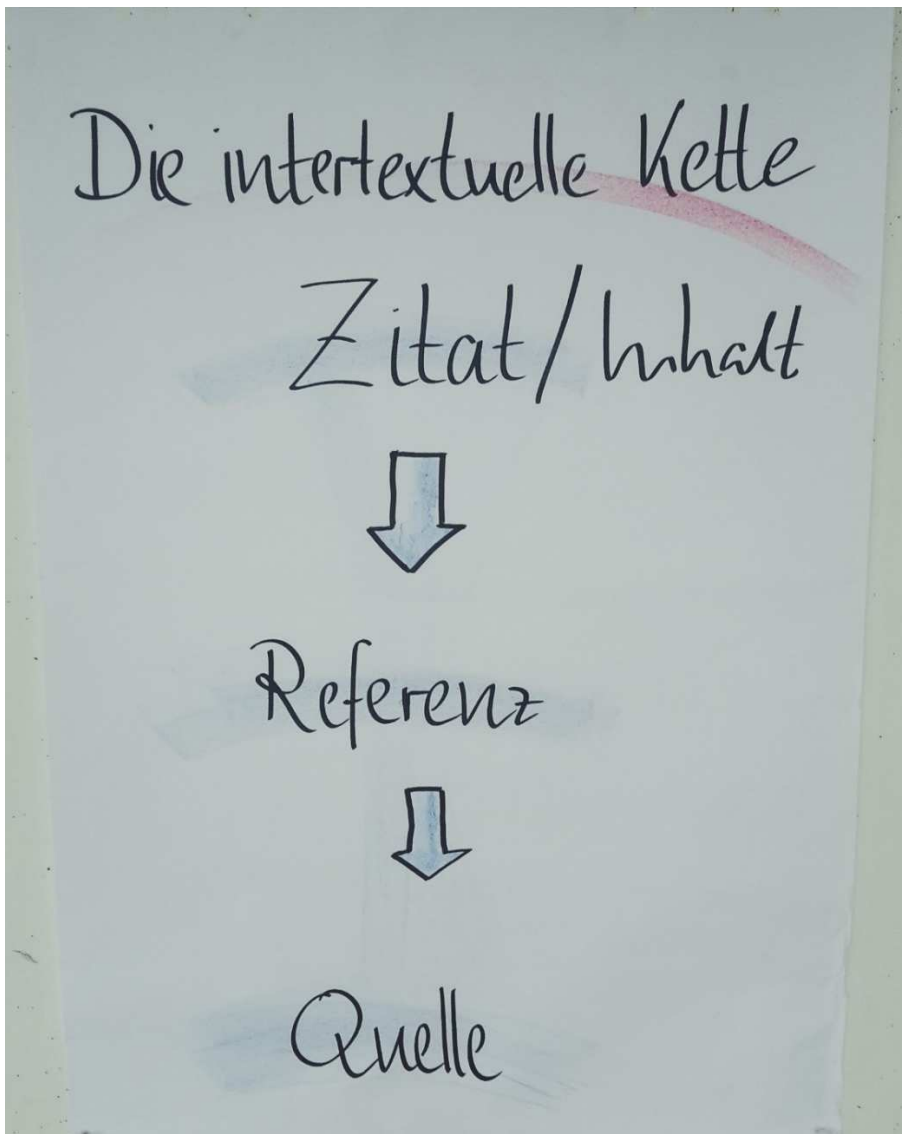 Die intertextuelle Kette
Zitat/Inhalt
Referenz
Quelle